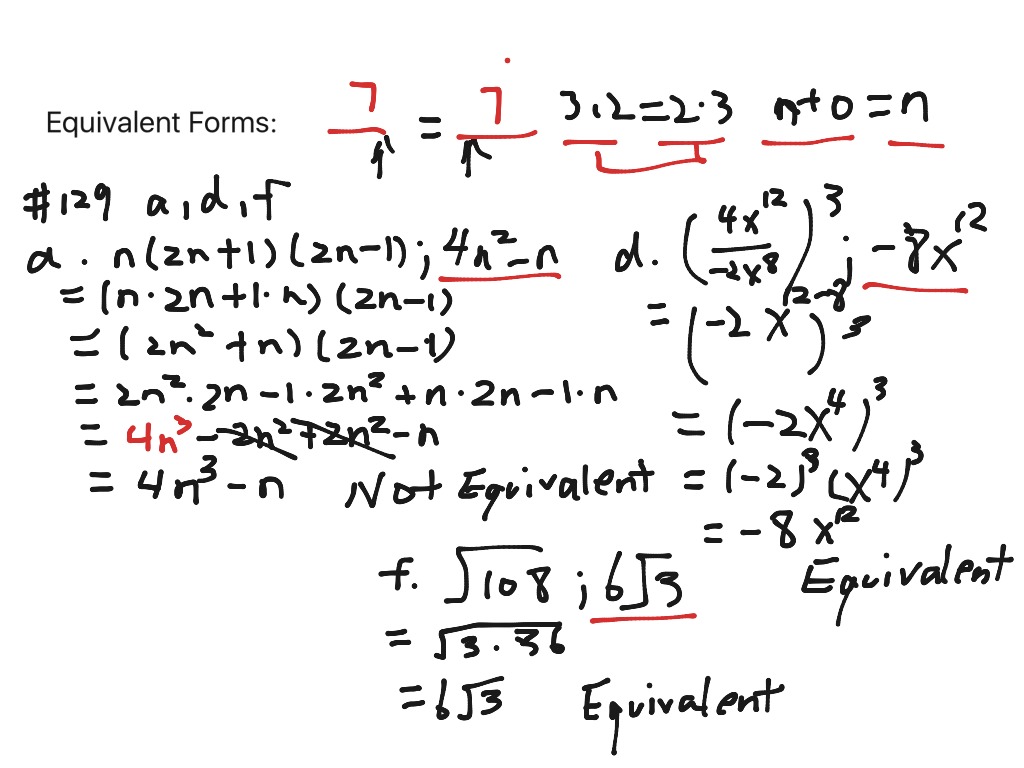 Equivalent Forms: 7/n = 7/n 3.2=2·3 n+0=n
#129 a,d,f
a. n(2n+1)(2n-1); 4n²-n
= (n·2n+1·n)(2n-1)
= (2n²+n)(2n-1)
= 2n²·2n-1·2n²+n·2n-1·n
= 4n³-2n²+2n²-n
= 4n³-n Not Equivalent
d. (4x¹²/-2x⁸)³; -8x¹²
= (-2x¹²⁻⁸)³
= (-2x⁴)³
= (-2)³(x⁴)³
= -8x¹²
Equivalent
f. √108; 6√3
= √3·36
= 6√3 Equivalent